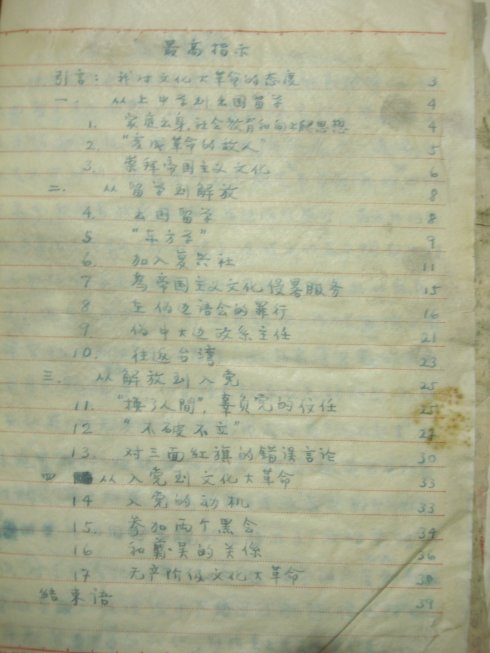 最高指示
引言：我对文化大革命的态度 3
一. 从上中学到去国留学 4
1. 家庭出身,社会教育和向上爬思想 4
2. "变成革命的敌人" 5
3. 崇拜帝国主义文化 6
二. 从留学到解放 8
4. 去国留学 8
5 "东方学" 9
6 加入复兴社 11
7 为帝国主义文化侵略服务 15
8 在伪边语会的罪行 16
9 伪中大边政系主任 21
10. 往返台湾 23
三. 从解放到入党 25
11. "换了人间",辜负党的信任 25
12 "不破不立" 27
13. 对三面红旗的错误言论 30
四 从入党到文化大革命 33
14 入党的动机 33
15. 参加两个黑会 34
16 和 吴的关系 36
17 无产阶级文化大革命 38
结束语 39